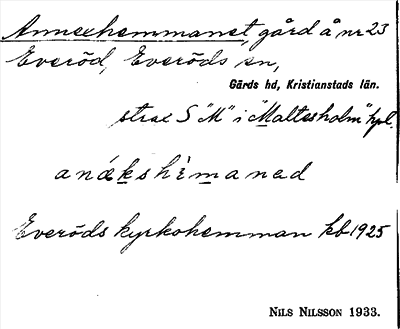 Annexhemmanet, gård å nr 23
Everöd, Everöds sn,
Gärds hd, Kristianstads län.
strax S "M" i "Maltesholm" hpl.
anækshèmanad
Everöds kyrkohemman kb 1925
NILS NILSSON 1933.